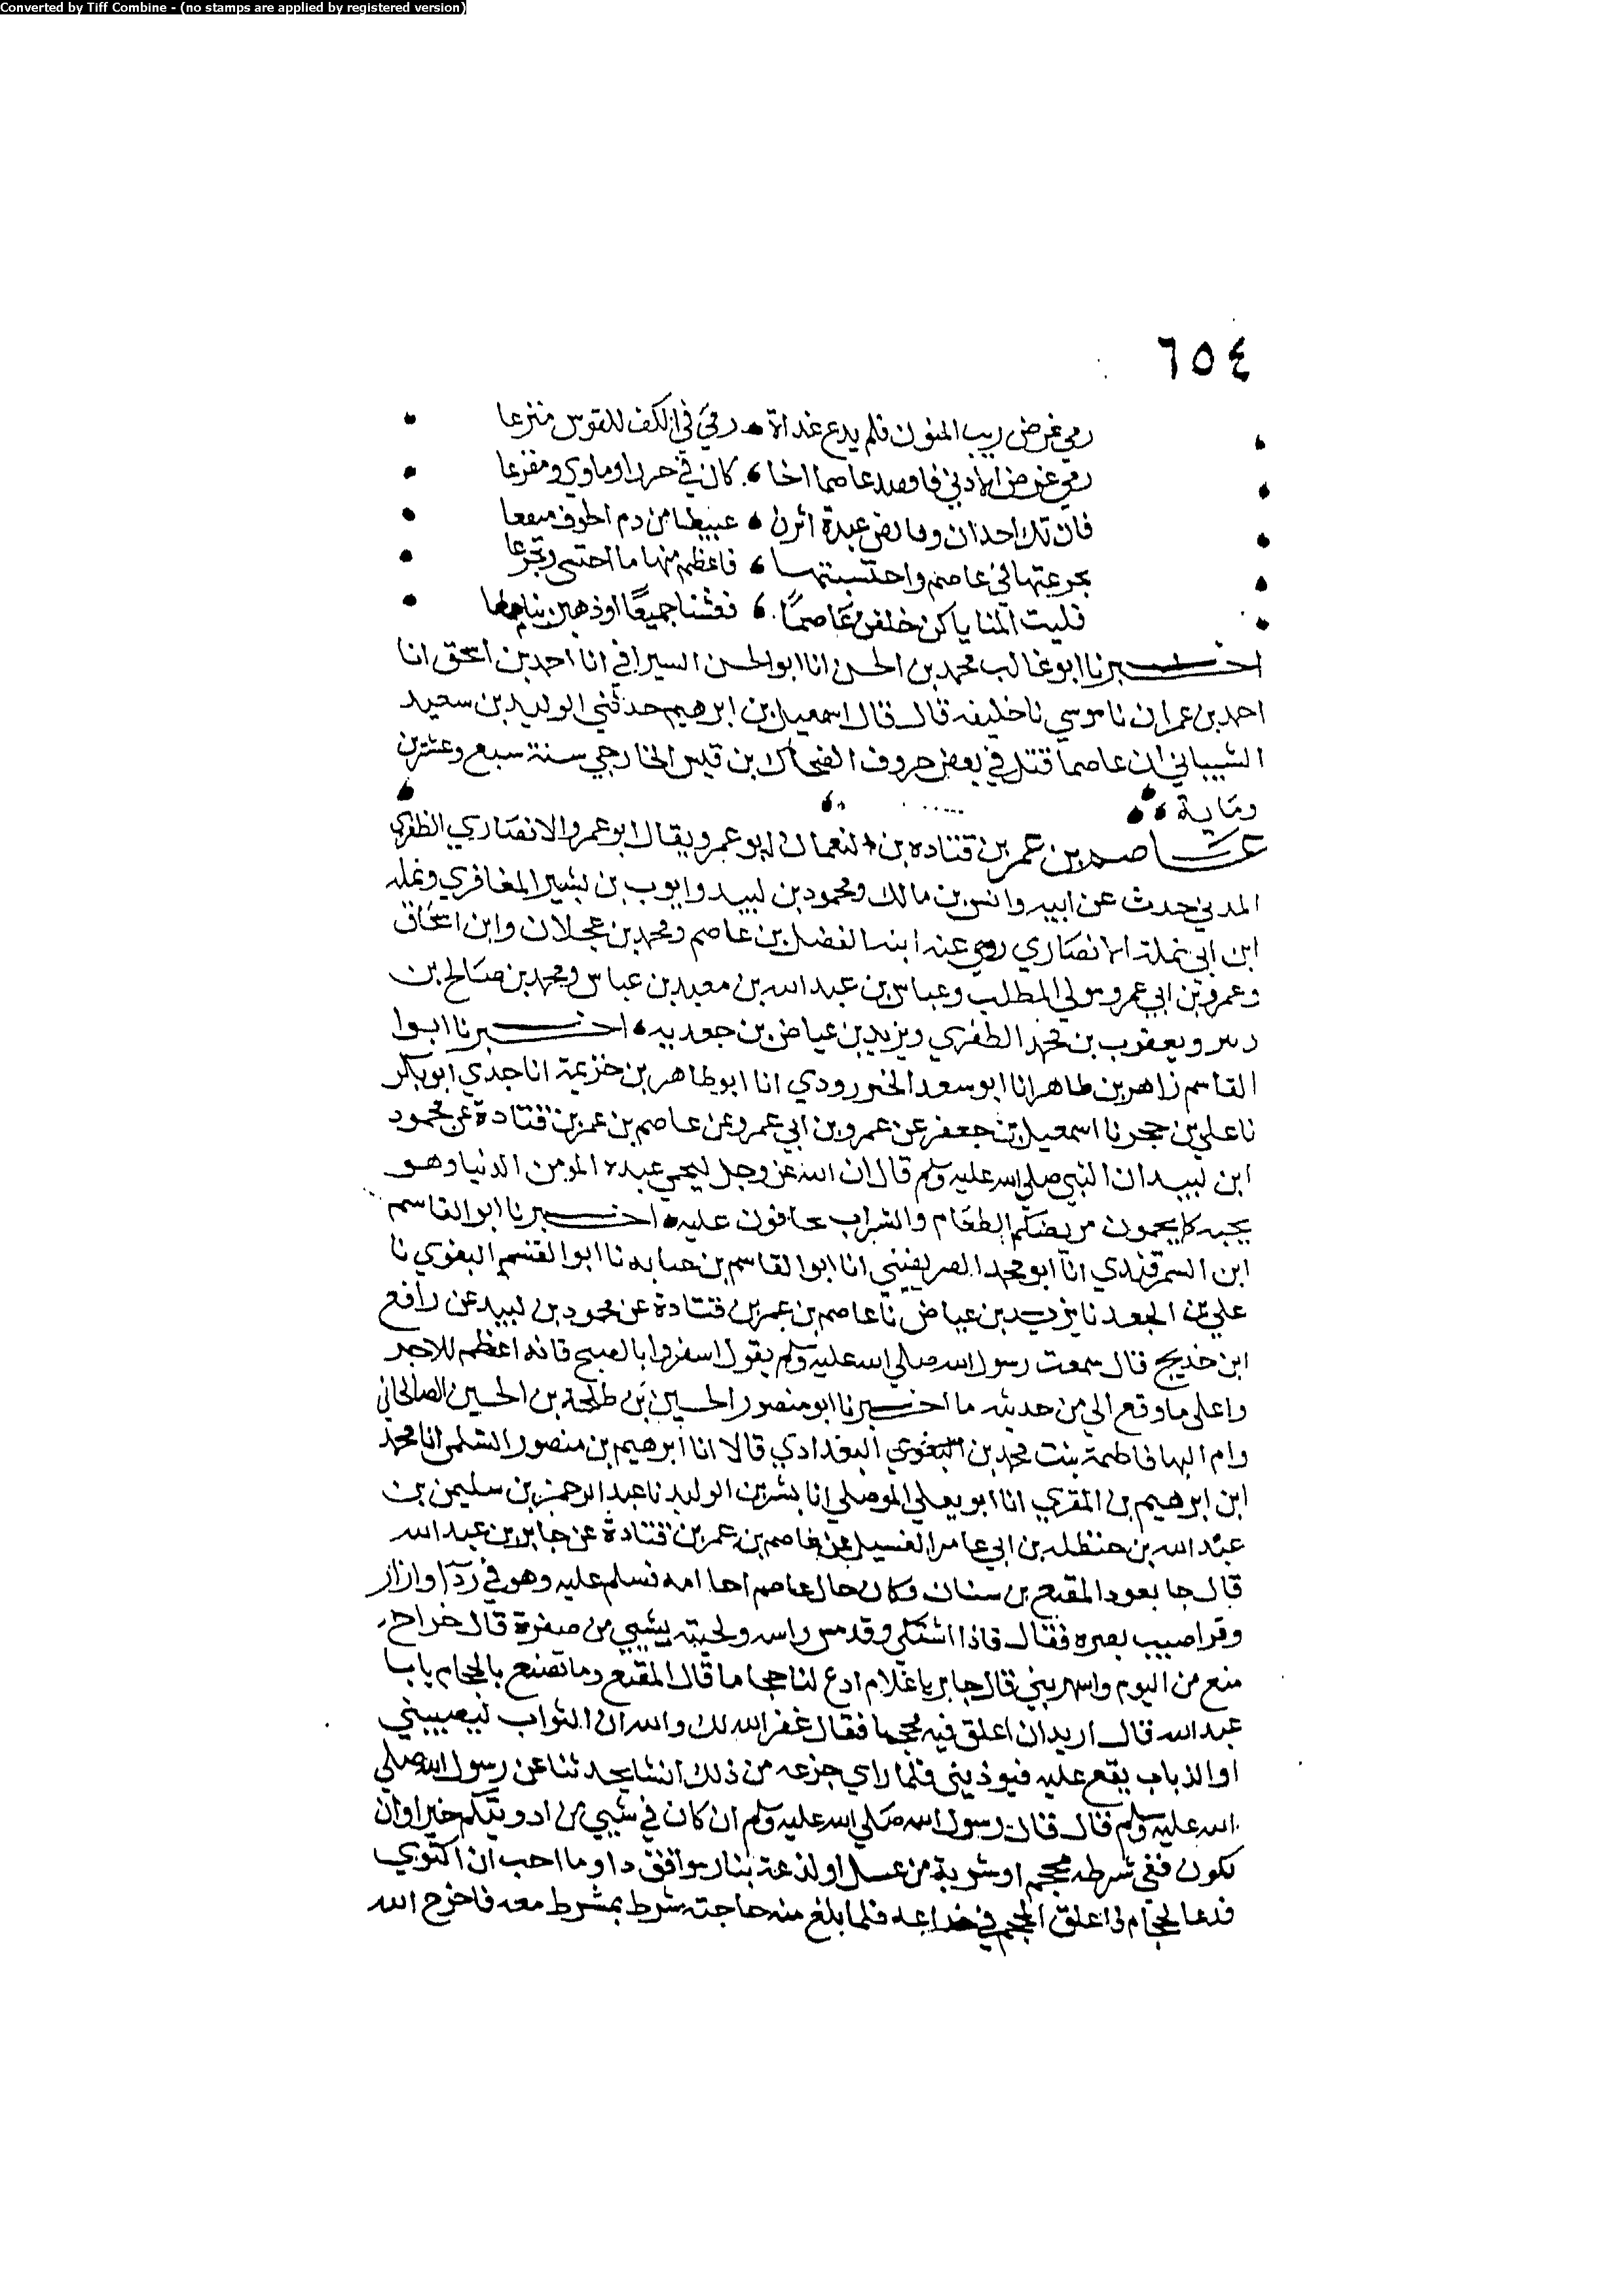 Converted by Tiff Combine - (no stamps are applied by registered version)
٦٥٤
رمي غرض ريب المنون فلم يدع غداة رمي في الكف للقوس منزعا
رمي غرض الأدنى فاقصد عاصما اخا كان لي حرزا وماوى ومفزعا
فان تك احزان وفايض عبرة اثرن عبيطا من دم الجوف منقعا
تجرعتها في عاصم واحتسبتها فاعظم منها ما احتسى وتجرعا
فليت المنايا كن خلفن عاصما فعشنا جميعا او ذهبن بنا معا
اخبرنا ابو غالب محمد بن الحسن انا ابو الحسن السيرافي انا احمد بن اسحق انا
احمد بن عمران نا موسي نا خليفه قال قال اسمعيل بن ابرهيم حدثني الوليد بن سعيد
الشيباني ان عاصما قتل في بعض حروف الضحاك بن قيس الخارجي سنة سبع وعشرين
وماية
عاصم بن عمر بن قتاده بن النعمان ابو عمر ويقال ابو عمرو الانصاري الظفري
المدني حدث عن ابيه وانس بن مالك ومحمود بن لبيد وايوب بن بشير المعافري ونمله
ابن ابي نملة الانصاري روي عنه ابنه الفضل بن عاصم ومحمد بن عجلان وابن اسحاق
وعمرو بن ابي عمرو مولي المطلب وعباس بن عبد الله بن معبد بن عباس ومحمد بن صالح بن
ويعقوب بن محمد الظفري ويزيد بن عياض بن جعدبه اخبرنا ابوا
القاسم زاهر بن طاهر انا ابو سعد الخنزرودي انا ابو طاهر بن خزيمة انا جدي ابو بكر
نا علي بن حجر نا اسمعيل بن جعفر عن عمرو بن ابي عمرو عن عاصم بن عمر بن قتادة عن محمود
ابن لبيد ان النبي صلي الله عليه وسلم قال ان الله عز وجل ليحمي عبده المومن الدنيا وهو
يحبه كما يحمون مريضكم الطعام والشراب تخافون عليه اخبرنا ابو القاسم
ابن السمرقندي انا ابو محمد الصريفيني انا ابو القاسم بن حبابه نا ابو القسم البغوي نا
علي بن الجعد نا يزيد بن عياض نا عاصم بن عمر بن قتادة عن محمود بن لبيد عن رافع
ابن خديج قال سمعت رسول الله صلي الله عليه وسلم يقول اسفروا بالصبح فانه اعظم للاجر
واعلى ما وقع الي من حديثه ما اخبرنا ابو منصور الحسين بن طلحة بن الحسين الصالحاني
وام البها فاطمة بنت محمد بن البغدادي قالا انا ابرهيم بن منصور السلمي انا محمد
ابن ابرهيم بن المقري انا ابو يعلي الموصلي انا بشر بن الوليد نا عبد الرحمن بن سليمن بن
عبد الله بن حنظله بن ابي عامر الغسيل عن عاصم بن عمر بن قتادة عن جابر بن عبد الله
قال جا يعود المقنع بن سنان وكان خال عاصم اخا امه فسلم عليه وهو في ردآ وازار
وقد اصيب بصره فقال فاذا اشتكى وقد مس راسه ولحيته بشيي من صفرة قال خراج
منع مني اليوم واسهرني قال جابر يا غلام ادع لنا حجاما قال المقنع وما تصنع بالحجام يابا
عبد الله قال اريد ان اعلق فيه محجما فقال غفر الله لك والله ان الثواب ليصيبني
او الذباب يقع عليه فيوذيني فلما راي جزعه من ذلك انشا يحدثنا عن رسول الله صلي
الله عليه وسلم فقال قال رسول الله صلي الله عليه وسلم ان كان في شيي من ادويتكم خير او ان
يكون ففي شرطه محجم او شربة من عسل او لذعة بنار يوافق دا وما احب ان اكتوي
فدعا لحجام فاعلق المحجم في خراجه فلما بلغ منه حاجته شرط بمشرط معه فاخرج الله